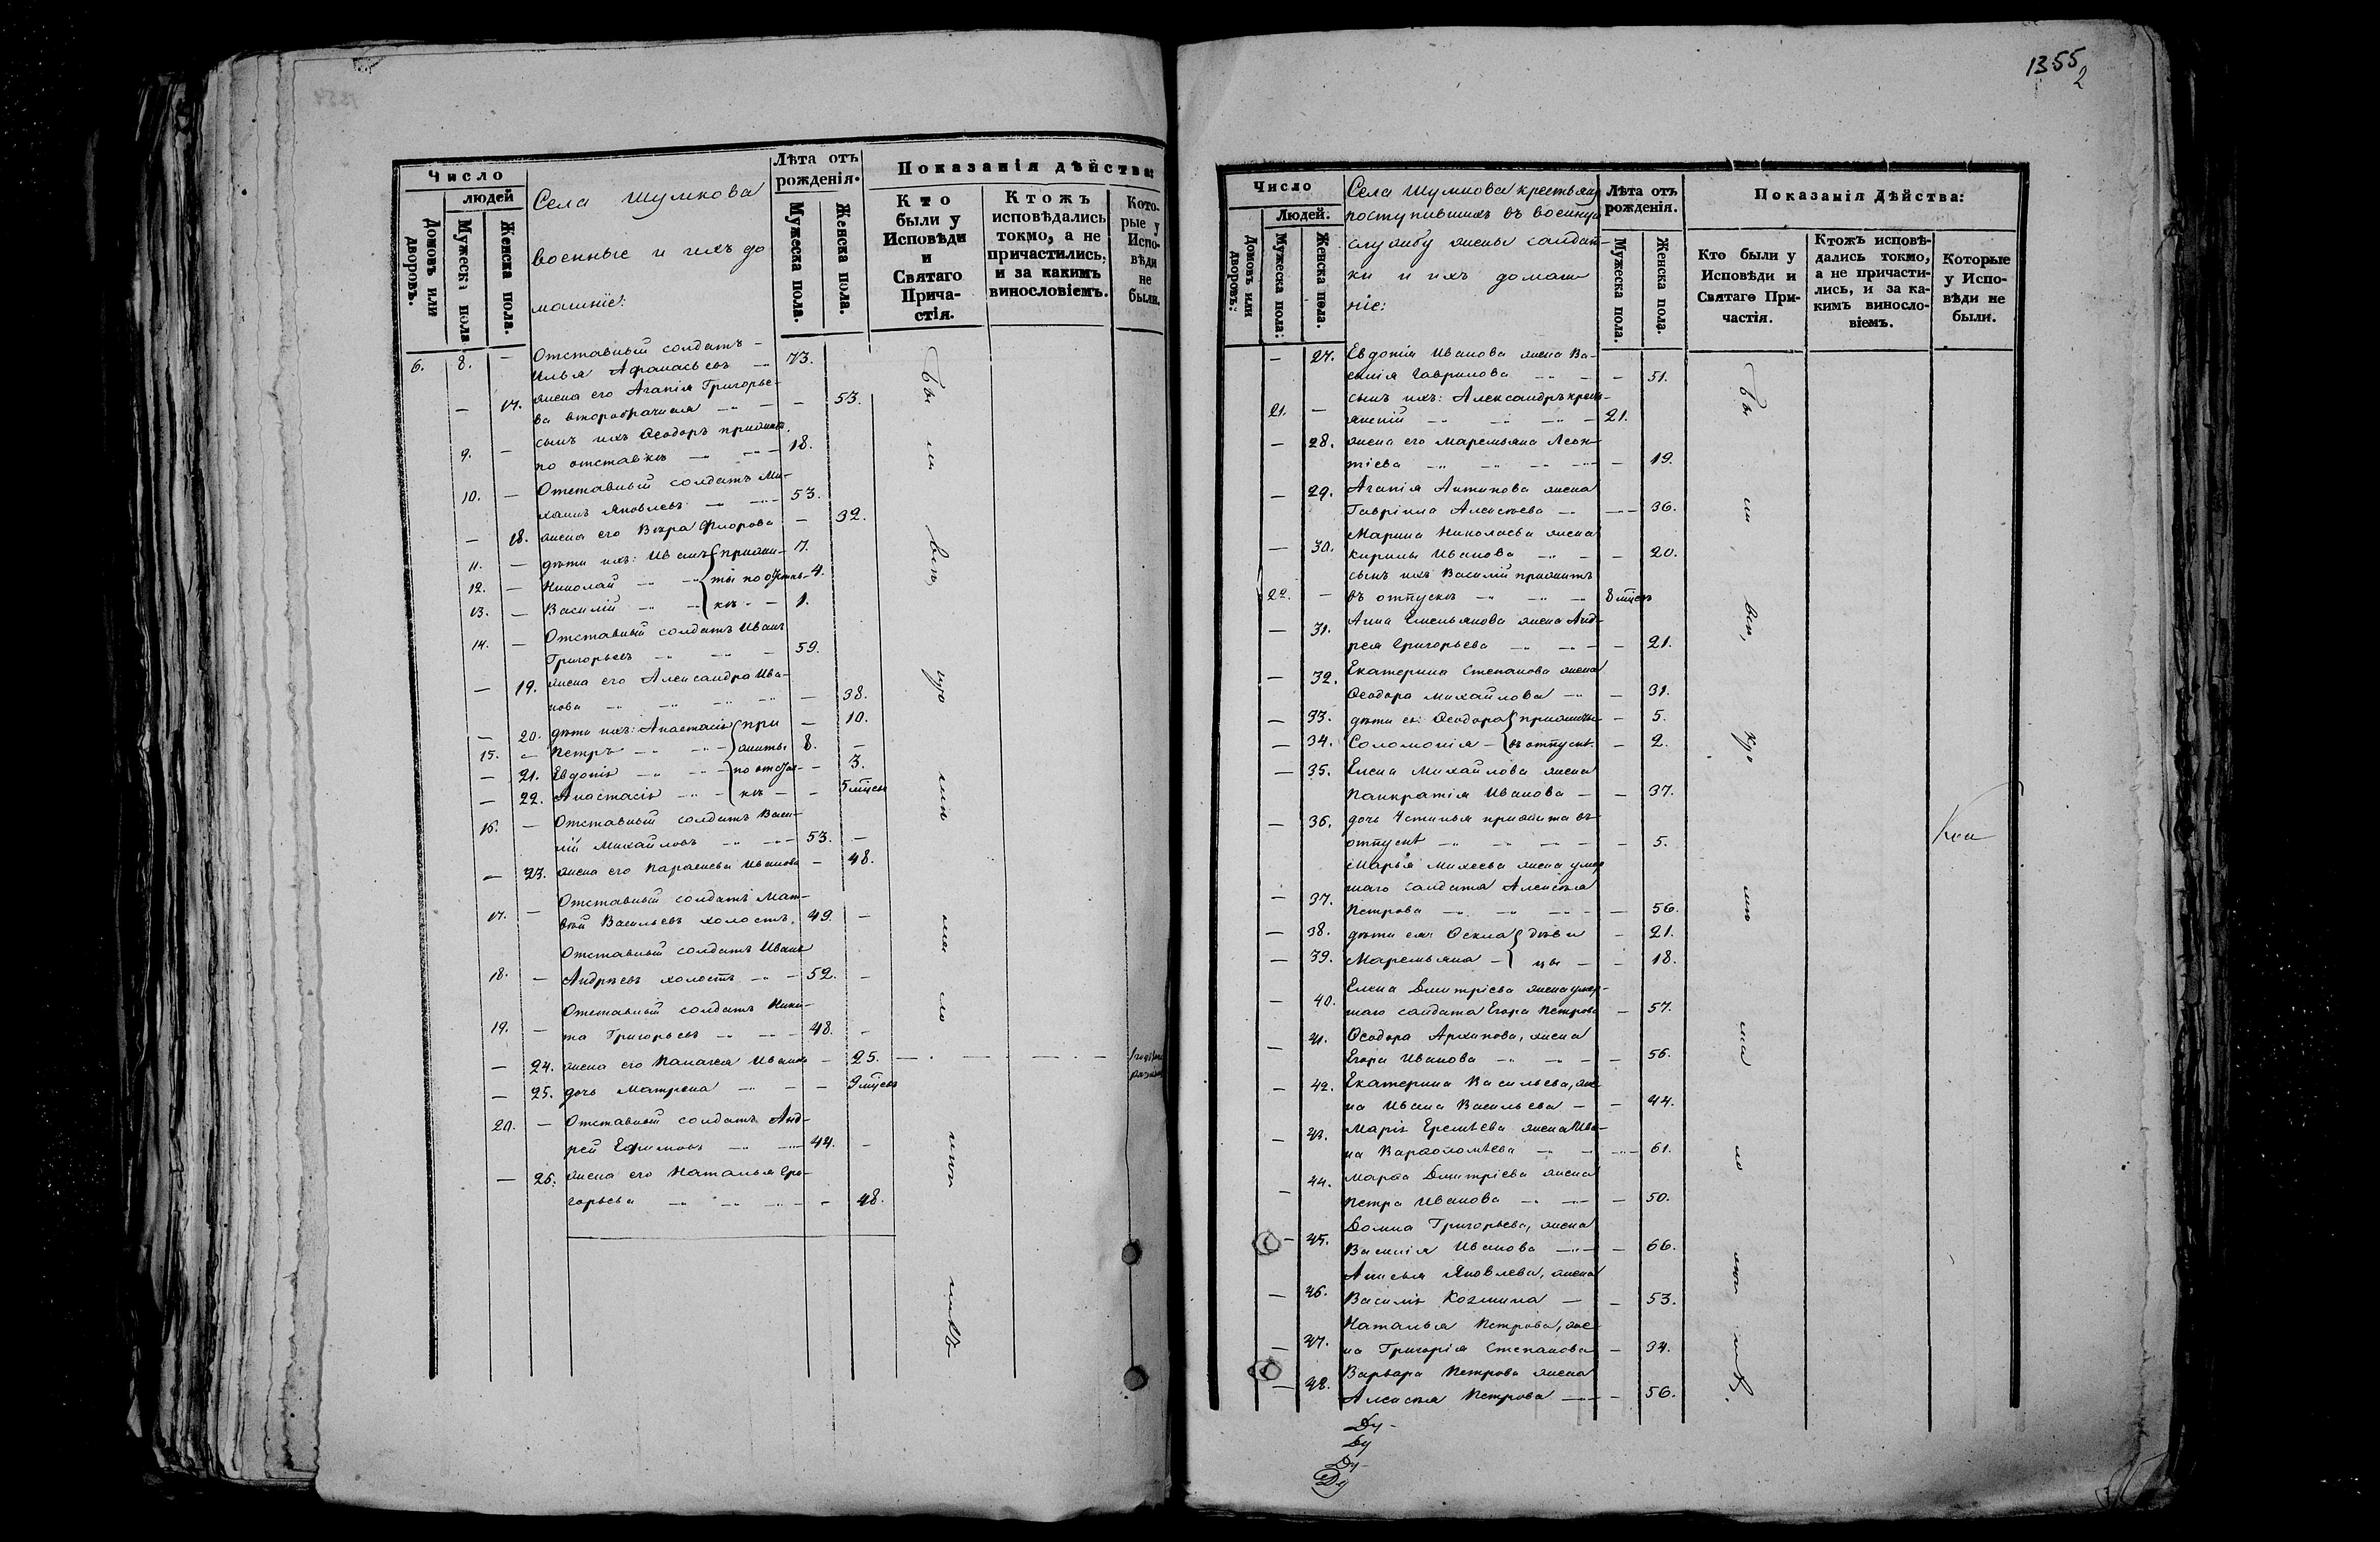 Число
людей
Домовъ или дворовъ.
Мужеска пола
Женска пола.
Села Шумкова
военные и ихъ до
машніе:
Лѣта отъ
рожденія.
Мужеска пола.
Женска пола.
Показанія дѣйства:
Кто
были у
Исповѣди
и
Святаго
Прича-
стія.
Ктожъ
исповѣдались
токмо, а не
причастились,
и за какимъ
винословіемъ.
Кото-
рые у
Испо-
вѣди
не
были.
6. 8. — Отставный солдатъ —
Илья Афанасьевъ — 73.
— 17. жена его Агапія Григорье-
ва второбрачная — — 53.
9. — сынъ ихъ Ѳеодоръ прижит.
по отставкѣ — 18.
10. — Отставный солдатъ Ми-
хаилъ Яковлевъ — 53.
— 18. жена его Вѣра Флорова — 32.
11. — дѣти ихъ: Иванъ прижи- 7.
12. — Николай — ты по отстав- 4.
13. — Василій — кѣ — 1.
14. — Отставный солдатъ Иванъ
Григорьевъ — 59.
— 19. жена его Александра Ива-
нова — — 38.
— 20. дѣти ихъ: Анастасія при — 10.
15. — Петръ — житы 8. —
— 21. Евдокія — по отстав- — 3.
— 22. Анастасія — кѣ — — 5 мѣсец
16. — Отставный солдатъ Васи-
лій Михайловъ — 53. —
— 23. жена его Параскева Иванова — 48.
17. — Отставный солдатъ Мат-
вѣй Васильевъ холостъ. 49. —
18. — Отставный солдатъ Иванъ
Андреевъ холостъ — 52. —
19. — Отставный солдатъ Ники-
та Григорьевъ — 48. —
— 24. жена его Палагея Иванова — 25.
— 25. дочь Матрена — — 9 мѣсец
20. — Отставный солдатъ Анд-
рей Ефимовъ — 44. —
— 26. жена его Наталья Гри-
горьева — — 48.
Бы ли всѣ,
1355
2
Число
Людей.
Домовъ или дворовъ:
Мужеска пола:
Женска пола.
Села Шумкова крестьянъ
поступившихъ въ военную
службу жены солдат-
ки и ихъ домаш
ніе:
Лѣта отъ
рожденія.
Мужеска пола.
Женска пола.
Показанія Дѣйства:
Кто были у
Исповѣди и
Святаго При-
частія.
Ктожъ исповѣ-
дались токмо,
а не причасти-
лись, и за ка-
кимъ виносло-
віемъ.
Которые
у Испо-
вѣди не
были.
— 27. Евдокія Иванова жена Ва-
силія Гаврилова — — 51.
21. — сынъ ихъ: Александръ крест-
янскій — 21.
— 28. жена его Маремьяна Леон-
тіева — — 19.
— 29. Агапія Антипова жена
Гавріила Алексѣева — — 36.
— 30. Марина Николаева жена
Кирилы Иванова — — 20.
22. — сынъ ихъ Василій прижитъ
въ отпускѣ — 8 мѣсец
— 31. Анна Емельянова жена Анд-
рея Григорьева — — 21.
— 32. Екатерина Степанова жена
Ѳеодора Михайлова — — 31.
— 33. дѣти ея: Ѳеодора прижиты — 5.
— 34. Соломонія — въ отпускѣ. — 2.
— 35. Елена Михайлова жена
Панкратія Иванова — — 37.
— 36. дочь Устинья прижита въ
отпускѣ — — 5.
— 37. Марья Михеева жена умер
шаго солдата Алексѣя
Петрова — — 56.
— 38. дѣти ея: Ѳекла дѣви — 21.
— 39. Маремьяна — цы — — 18.
— 40. Елена Дмитріева жена умер-
шаго солдата Егора Петрова — 57.
— 41. Ѳеодора Архипова, жена
Егора Иванова — — 56.
— 42. Екатерина Васильева, же-
на Ивана Васильева — — 44.
— 43. Марія Еремѣева жена Ива-
на Варѳоломѣева — — 61.
— 44. Марѳа Дмитріева жена
Петра Иванова — — 50.
— 45. Домна Григорьева, жена
Василія Иванова — — 66.
— 46. Анисья Яковлева, жена
Василія Козмина — — 53.
— 47. Наталья Петрова, же-
на Григорія Степанова — 34.
— 48. Варвара Петрова жена
Алексѣя Петрова — — 56.
Бы ли всѣ,
Ду-
Ду
Ду-
Ду